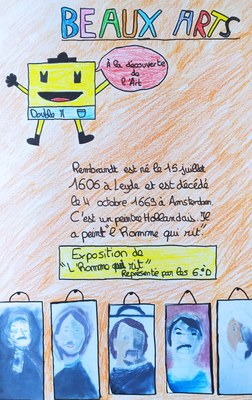 BEAUX ARTS
À la découverte
de
l'Art
Double M
Rembrandt est né le 15 juillet
1606 à Leyde et est décédé
le 4 octobre 1669 à Amsterdam.
C'est un peintre Hollandais. Il
a peint "l'Homme qui rit".
Exposition de
"L'Homme qui rit"
Représenté par les 6°D